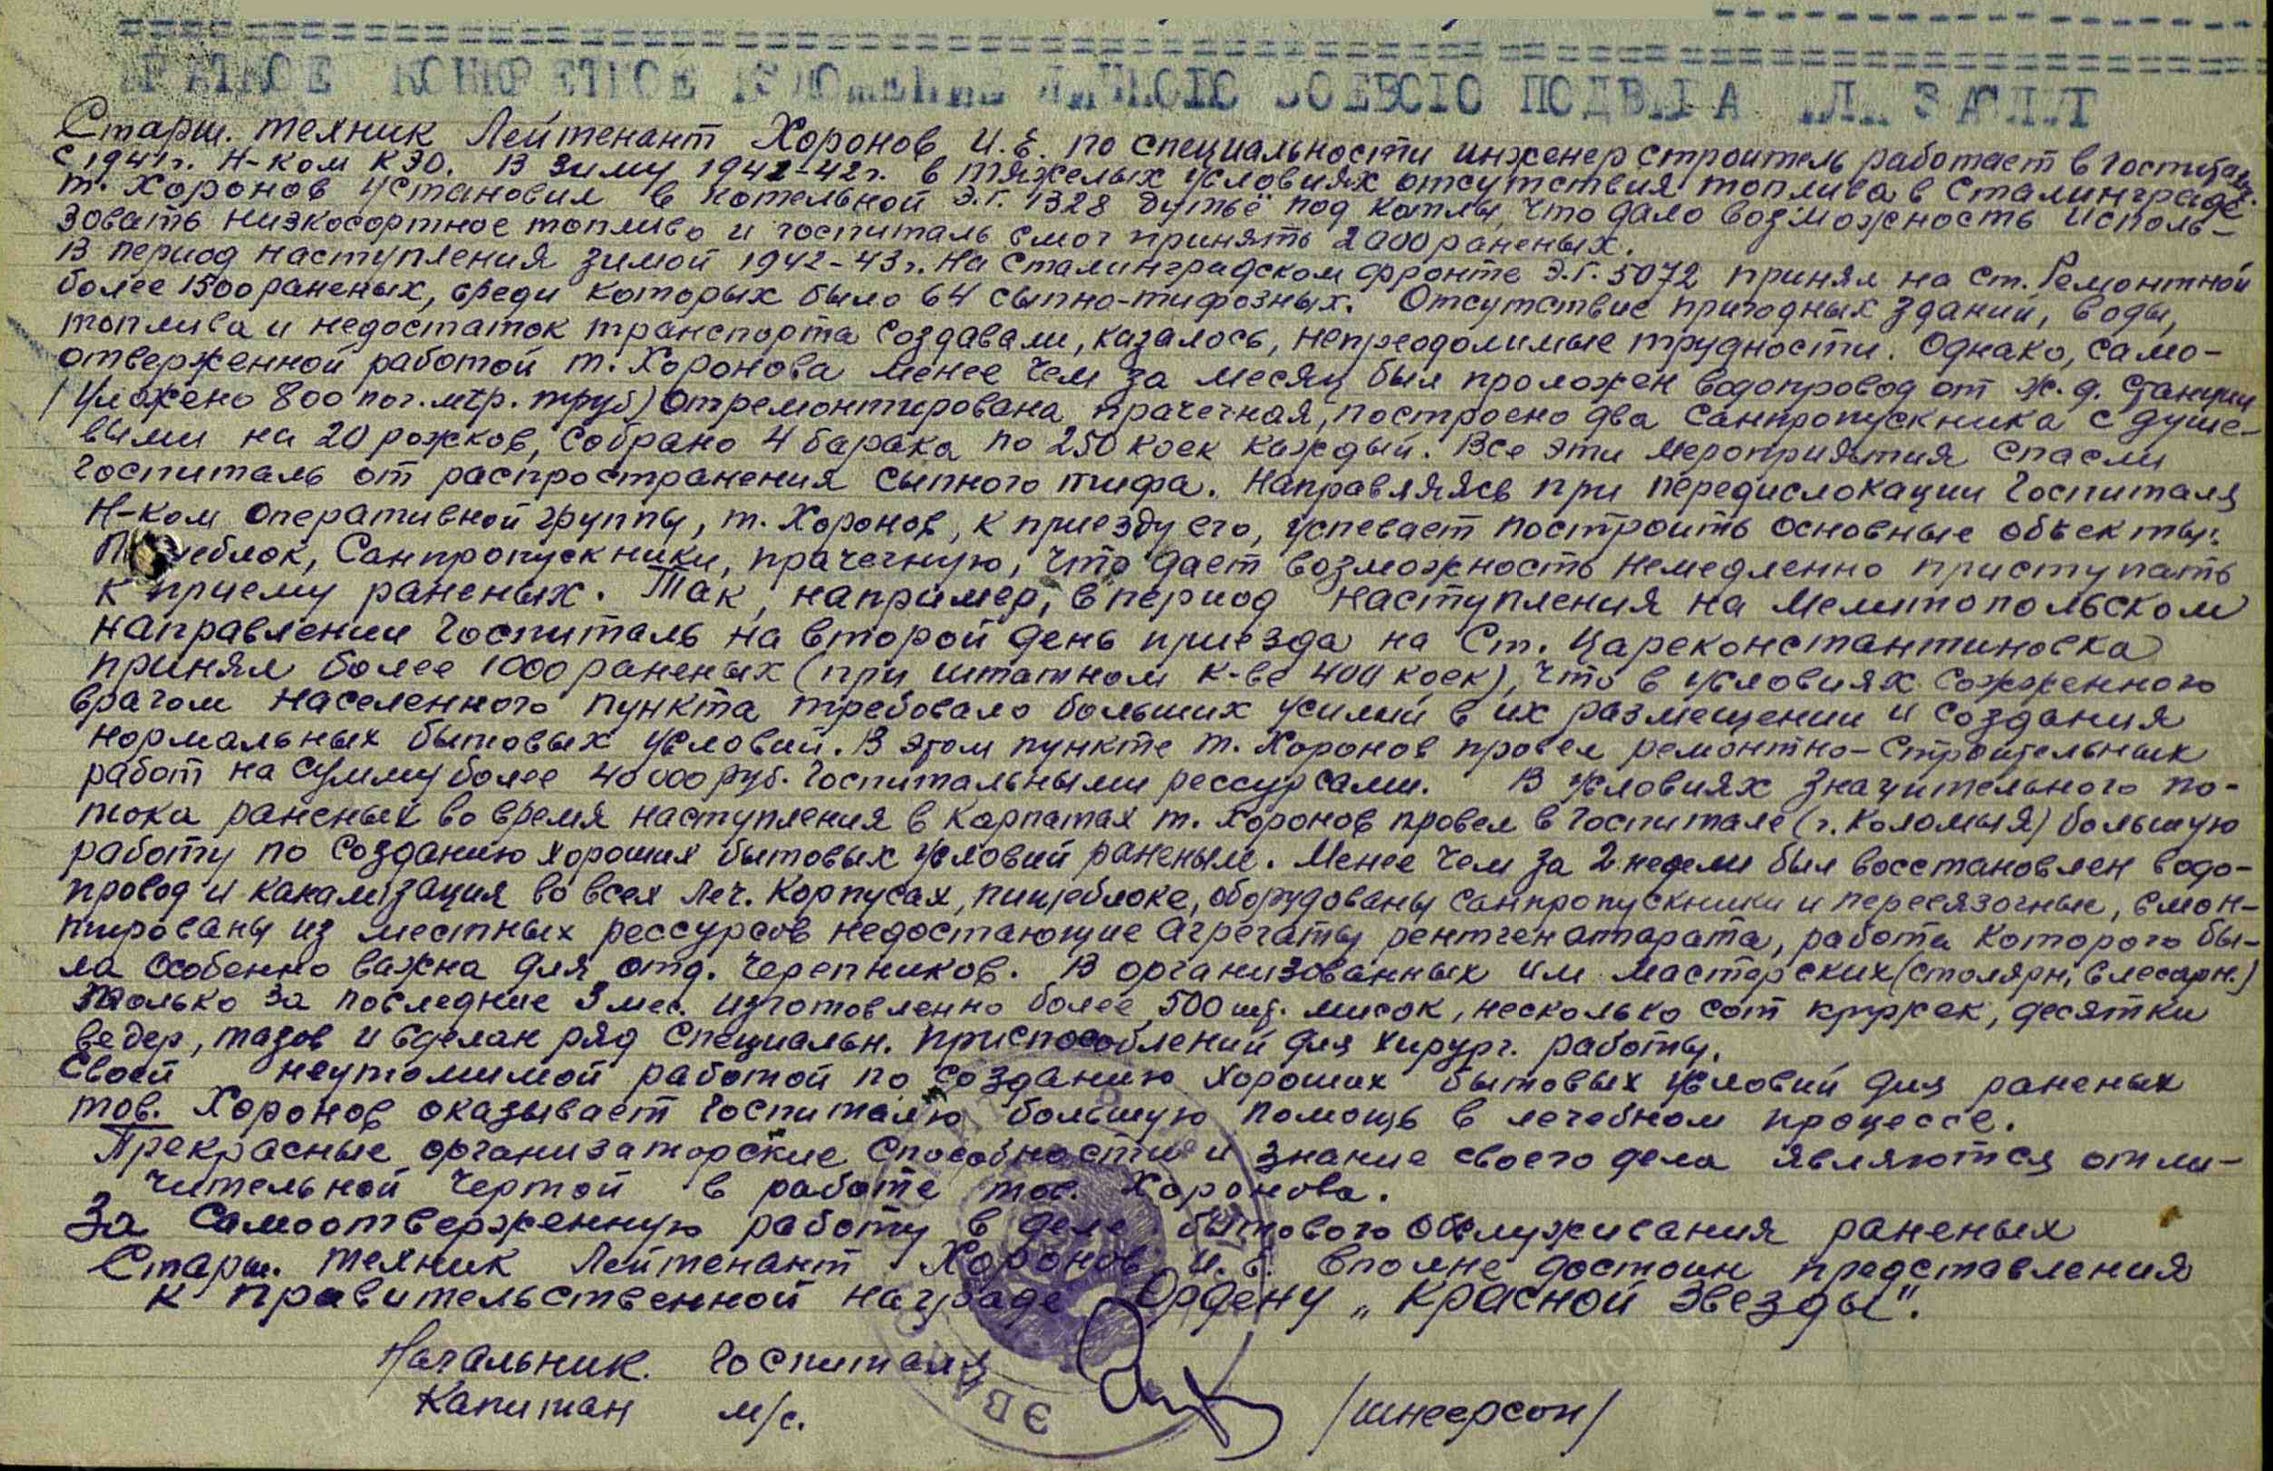 КРАТКОЕ КОНКРЕТНОЕ ИЗЛОЖЕНИЕ ЛИЧНОГО БОЕВОГО ПОДВИГА ИЛИ ЗАСЛУГ
Старш. техник Лейтенант Хоронов И.Е. по специальности инженер строитель работает в госпитале
с 1941г. Н-ком КЭО. В зиму 1941-42г. в тяжелых условиях отсутствия топлива в Сталинграде
т. Хоронов установил в котельной Э.Г. 1328 дутьё под котлы, что дало возможность исполь-
зовать низкосортное топливо и госпиталь смог принять 2000 раненых.
В период наступления зимой 1942-43г. на Сталинградском фронте Э.Г. 5072 принял на ст. Ремонтной
более 1500 раненых, среди которых было 64 сыпно-тифозных. Отсутствие пригодных зданий, воды,
топлива и недостаток транспорта создавали, казалось, непреодолимые трудности. Однако, само-
отверженной работой т. Хоронова менее чем за месяц был проложен водопровод от ж.д. станции
(Уложено 800 пог. мтр. труб) отремонтирована прачечная, построено два санпропускника с душе-
выми на 20 рожков, собрано 4 барака по 250 коек каждый. Все эти мероприятия спасли
госпиталь от распространения сыпного тифа. Направляясь при передислокации госпиталя
Н-ком оперативной группы, т. Хоронов, к приезду его, успевает построить основные объекты:
Пищеблок, Санпропускники, прачечную, что дает возможность немедленно приступать
к приему раненых. Так, например, в период наступления на Мелитопольском
направлении госпиталь на второй день приезда на ст. Цареконстантиновка
принял более 1000 раненых (при штатном к-ве 400 коек), что в условиях сожженного
врагом населенного пункта требовало больших усилий в их размещении и создания
нормальных бытовых условий. В этом пункте т. Хоронов провел ремонтно-строительных
работ на сумму более 40000 руб. госпитальными рессурсами. В условиях значительного по-
тока раненых во время наступления в Карпатах т. Хоронов провел в госпитале (г. Коломыя) большую
работу по созданию хороших бытовых условий раненым. Менее чем за 2 недели был восстановлен водо-
провод и канализация во всех леч. корпусах, пищеблоке, оборудованы санпропускники и перевязочные, смон-
тированы из местных рессурсов недостающие агрегаты рентгенаппарата, работа которого бы-
ла особенно важна для отд. черепников. В организованных им мастерских (столярн, слесарн.)
только за последние 3 мес. изготовленно более 500 шт. мисок, несколько сот кружек, десятки
ведер, тазов и сделан ряд специальн. приспособлений для хирург. работы.
Своей неутомимой работой по созданию хороших бытовых условий для раненых
тов. Хоронов оказывает госпиталю большую помощь в лечебном процессе.
Прекрасные организаторские способности и знание своего дела являются отли-
чительной чертой в работе тов. Хоронова.
За самоотверженную работу в деле бытового обслуживания раненых
Старш. техник Лейтенант Хоронов И.Е. вполне достоин представления
к правительственной награде Ордену „Красной Звезды".
Начальник госпиталя
Капитан м/с. /Шнеерсон/